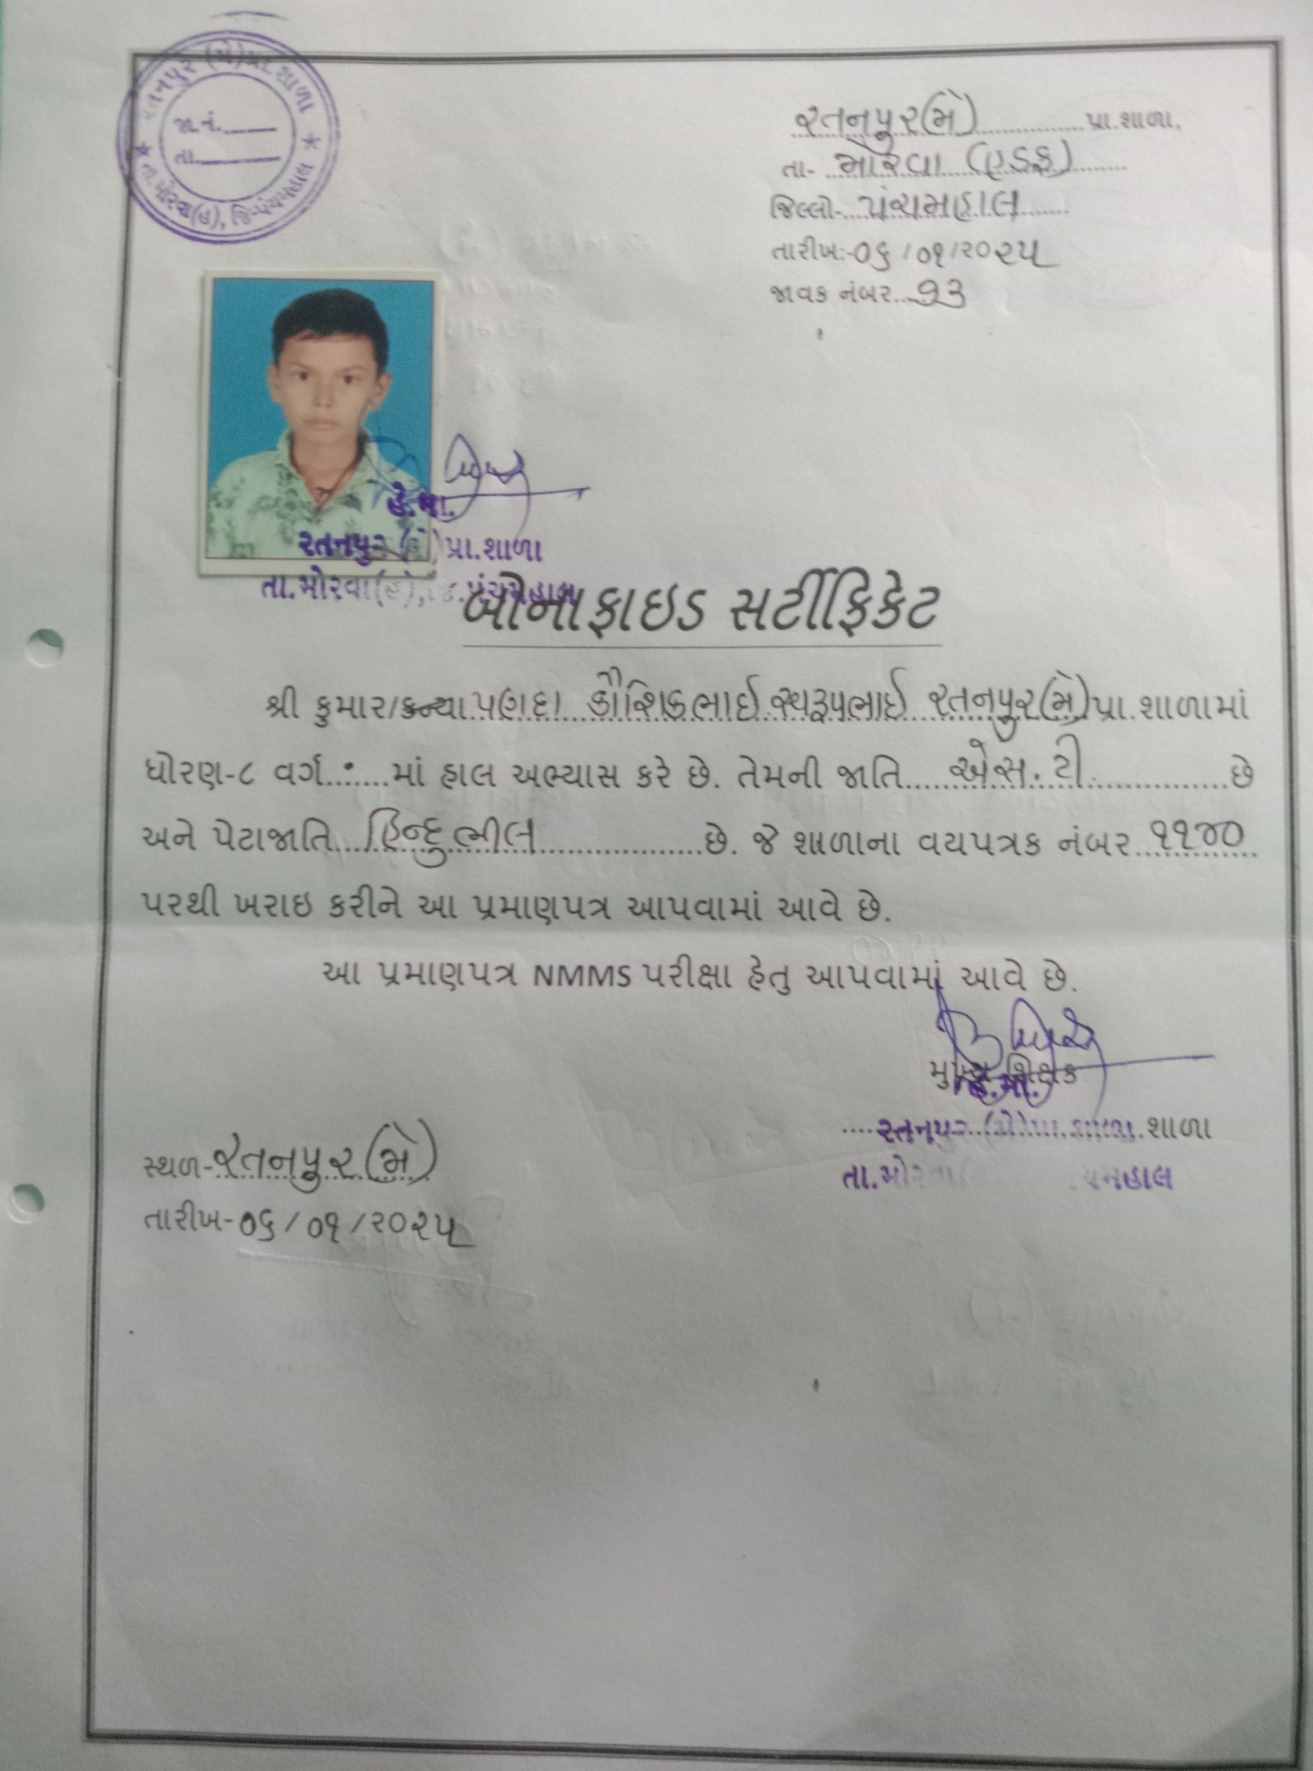 રતનપુર (મે) પ્રા. શાળા
જા.નં.
તા.
તા.મોરવા(હ), જિ-પંચમહાલ
રતનપુર(મે) પ્રા.શાળા,
તા- મોરવા (હડફ)
જિલ્લો- પંચમહાલ
તારીખ:-૦૬/૦૧/૨૦૨૫
જાવક નંબર...૭૩
હે.મા.
રતનપુર (મે) પ્રા.શાળા
તા.મોરવા(હ), જિ.પંચમહાલ
બોનાફાઇડ સર્ટીફિકેટ
શ્રી કુમાર/કન્યા કૌશિકભાઈ સ્વરૂપભાઈ રતનપુર(મે) પ્રા.શાળામાં
ધોરણ-૮ વર્ગ.......માં હાલ અભ્યાસ કરે છે. તેમની જાતિ....એસ.ટી..............છે
અને પેટાજાતિ...હિન્દુ ભીલ................છે. જે શાળાના વયપત્રક નંબર ૧૧૪૦
પરથી ખરાઇ કરીને આ પ્રમાણપત્ર આપવામાં આવે છે.
આ પ્રમાણપત્ર NMMS પરીક્ષા હેતુ આપવામાં આવે છે.
મુખ્ય શિક્ષક
હે.મા.
રતનપુર (મે) પ્રા.શાળા શાળા
તા.મોરવા
સ્થળ-રતનપુર(મે)
તારીખ-૦૬/૦૧/૨૦૨૫